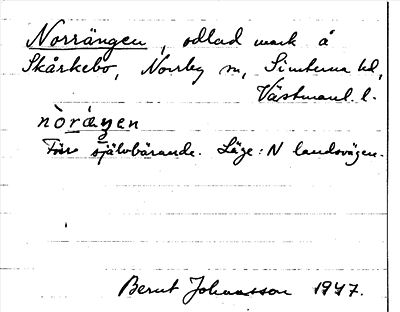 Norrängen, odlad mark å
Skårkebo, Norrby sn, Simtuna hd,
Västmanl. l.
nòrǽŋen
Förr självbärande. Läge: N landsvägen.
Bernt Johansson 1947.